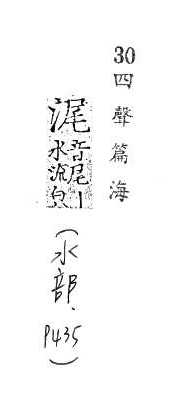 30四聲篇海
浘音尾丨
水流皃
(水部.P435)